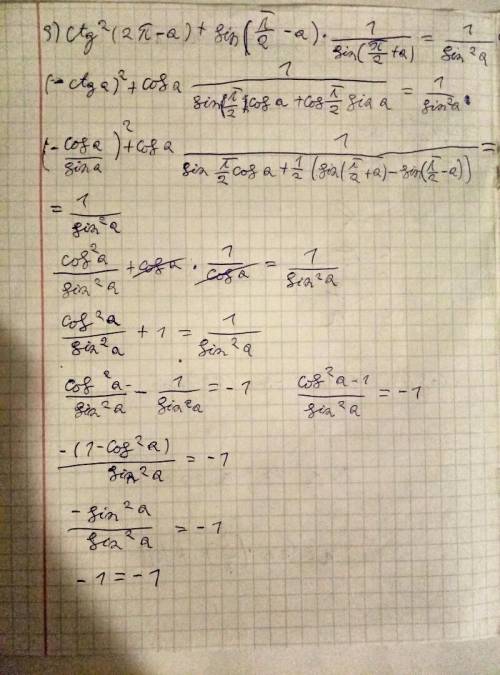 3) ctg²(2π-a) + sin(π/2 - a) · 1/sin(π/2 + a) = 1/sin²a
(-ctg a)² + cos a 1/(sin(π/2) cos a + cos π/2 sin a) = 1/sin²a
(-cos a/sin a)² + cos a 1/(sin π/2 cos a + 1/2 (sin(π/2 + a) - sin(π/2 - a))) =
= 1/sin²a
cos²a/sin²a + cos a · 1/cos a = 1/sin²a
cos²a/sin²a + 1 = 1/sin²a
cos²a-/sin²a - 1/sin²a = -1 (cos²a-1)/sin²a = -1
-(1-cos²a)/sin²a = -1
-sin²a/sin²a = -1
-1 = -1